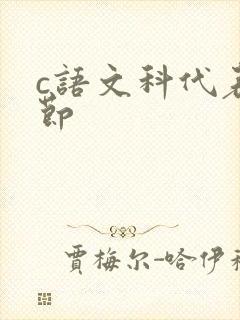 c語文科代表
節
賈梅尔-哈伊利